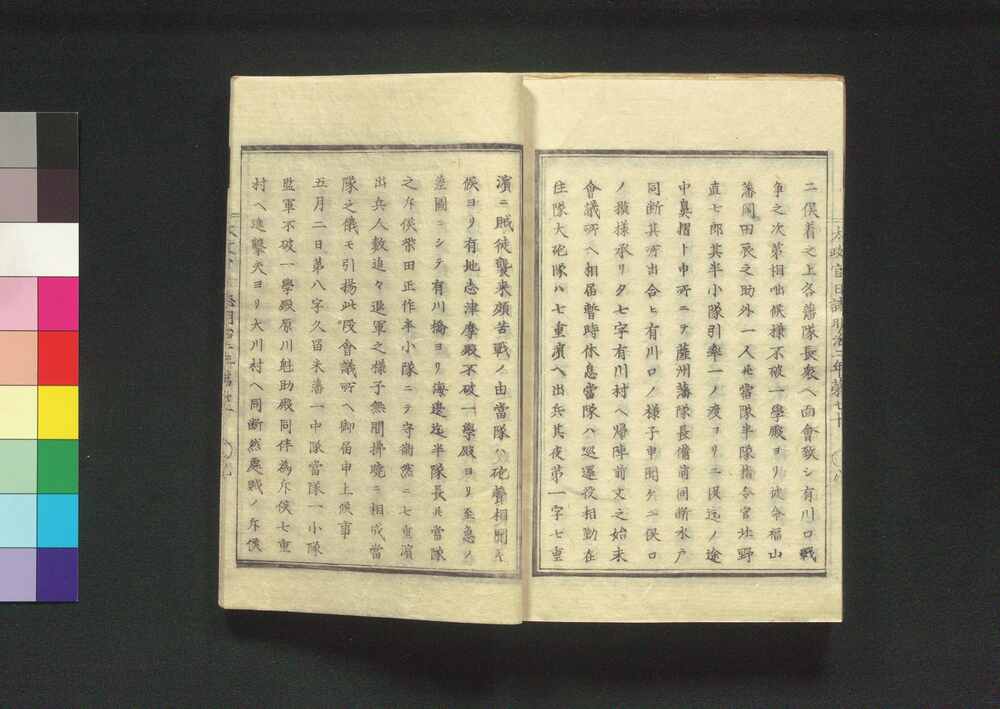 ニ俣着之上各藩隊長衆ヘ面會致シ有川口戰
争之次第相咄候様不破一學殿ヨリ达命福山
藩岡田辰之助外一人並當隊半隊指令官辻野
直七郎其半小隊引率一ノ渡ヨリニ俣迄ノ途
中臭摺ト申所ニテ薩州藩隊長備前同断水戸
同断其所出合ヒ有川口ノ様子申聞候ニ俣口
ノ模様承リ夕七字有川村ヘ帰陣前文之始末
會議所ヘ相届暫時休息當隊ハ巡邏役相勤在
住隊大砲隊ハ七重濱ヘ出兵其夜第一字七重
太政官日誌明治二年第七十
濱ニ賊徒襲来頗苦戰ノ由當隊ハ砲聲相聞ヘ
候ヨリ有地志津摩殿不破一學殿ヨリ至急ノ
差圖ニシテ有川橋ヨリ海邊迄半隊長並當隊
之斥候帶田正作半小隊ニテ守衞然ニ七重濱
出兵人數追々退軍之様子無間拂曉ニ相成當
隊之儀モ引揚此段會議所ヘ御届申上候事
五月二日第八字久留米藩一中隊當隊一小隊
監軍不破一學殿原川魁助殿同伴為斥候七重
村ヘ進撃夫ヨリ大川村ヘ同断然處賊ノ斥候